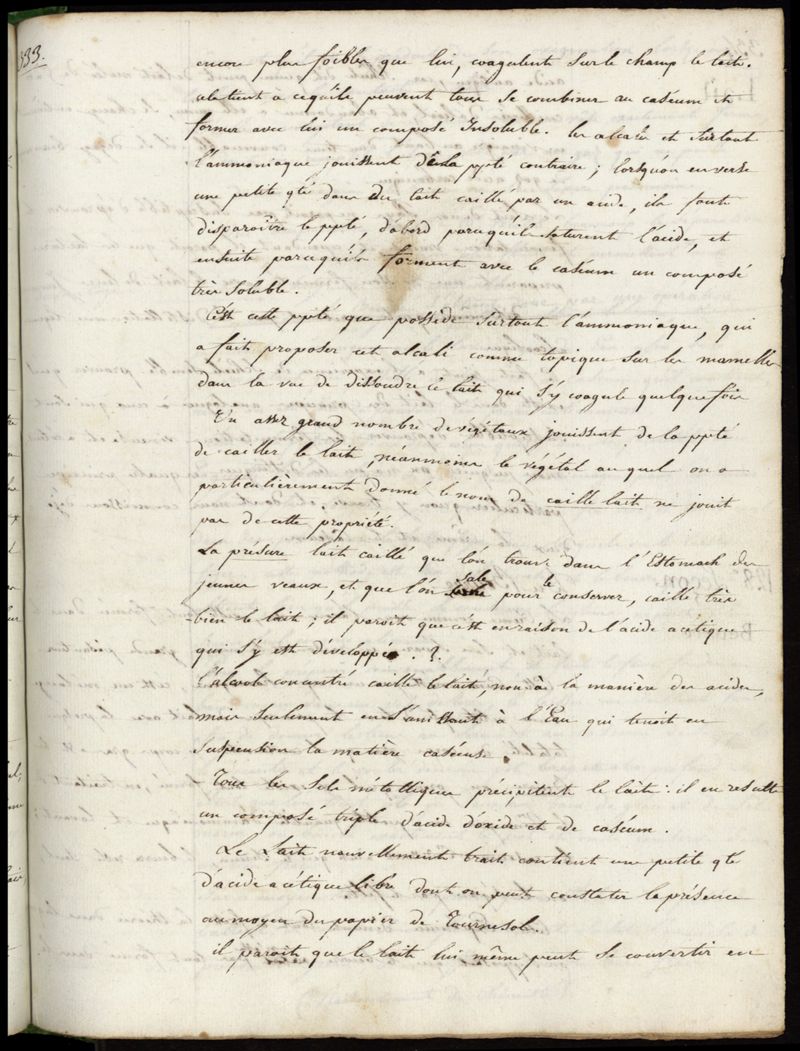 333.
encore plus foibles que lui, coagulent sur le champ le lait.
cela tient à ce qu'ils peuvent tous se combiner au caséum et
former avec lui un composé insoluble. les alcalis et surtout
l'ammoniaque jouissent de la ppté contraire; lorsqu'on en verse
une petite qté dans du lait caillé par un acide, ils font
disparoitre le ppté, d'abord parcequ'ils saturent l'acide, et
ensuite parcequ'ils forment avec le caséum un composé
très soluble.
C'est cette ppté que possède surtout l'ammoniaque, qui
a fait proposer cet alcali comme topique sur les mamelles
dans la vue de dissoudre le lait qui s'y coagule quelquefois
Un assez grand nombre de végétaux jouissent de la ppté
de cailler le lait, néanmoins le végétal auquel on a
particulièrement donné le nom de caille lait ne jouit
pas de cette propriété.
La présure lait caillé que l'on trouve dans l'Estomach des
jeunes veaux, et que l'on sale pour le conserver, caille très
bien le lait; il paroit que c'est en raison de l'acide acétique
qui s'y est développé. ?
L'alcool concentré caille le lait, non à la manière des acides,
mais seulement en s'unissant à l'Eau qui tenoit en
suspension la matière caséeuse.
Tous les sels métalliques précipitent le lait: il en resulte
un composé triple d'acide d'oxide et de caséum.
Le Lait nouvellement trait contient une petite qté
d'acide acétique libre dont on peut constater la présence
au moyen du papier de Tournesol.
il paroit que le lait lui même peut se convertir en